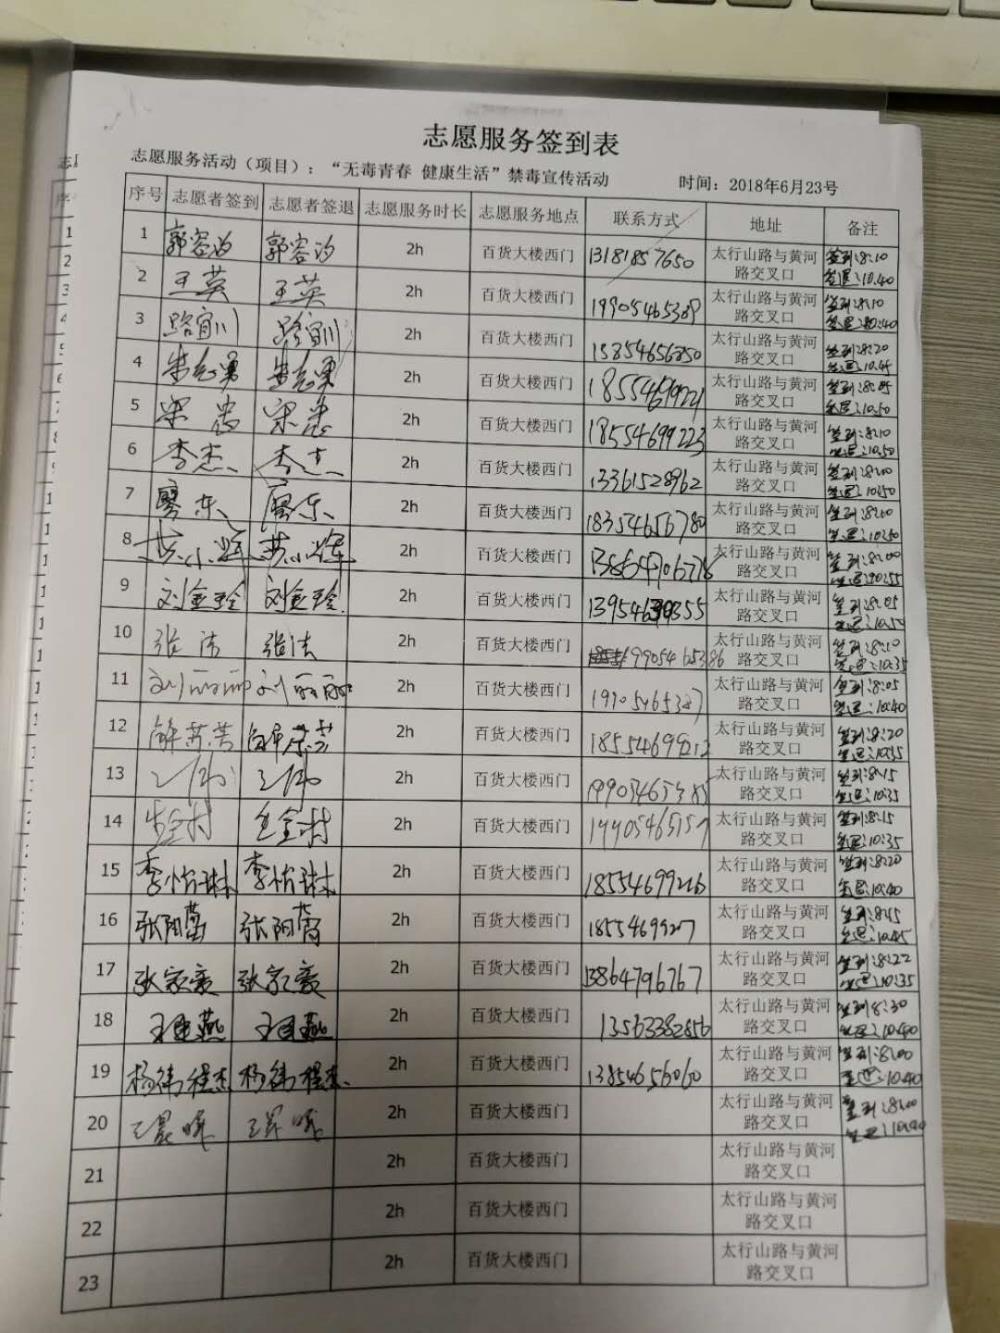 志愿服务签到表
志愿服务活动（项目）：“无毒青春 健康生活”禁毒宣传活动 时间：2018年6月23号
序号 志愿者签到 志愿者签退 志愿服务时长 志愿服务地点 联系方式 地址 备注
1 郭容汝 郭容汝 2h 百货大楼西门 13181857650 太行山路与黄河路交叉口 签到:8:10 签退:10:40
2 王英 王英 2h 百货大楼西门 19905465389 太行山路与黄河路交叉口 签到:8:10 签退:10:40
3 2h 百货大楼西门 15854656850 太行山路与黄河路交叉口 签到:8:20 签退:10:45
4 2h 百货大楼西门 18554699221 太行山路与黄河路交叉口 签到:8:05 签退:10:50
5 宋忠 宋忠 2h 百货大楼西门 18554699223 太行山路与黄河路交叉口 签到:8:10 签退:10:50
6 李杰 李杰 2h 百货大楼西门 13361528962 太行山路与黄河路交叉口 签到:8:00 签退:10:50
7 廖东 廖东 2h 百货大楼西门 18354656780 太行山路与黄河路交叉口 签到:8:00 签退:10:50
8 苏小辉 苏小辉 2h 百货大楼西门 太行山路与黄河路交叉口 签到:8:00 签退:10:55
9 刘金玲 刘金玲 2h 百货大楼西门 太行山路与黄河路交叉口 签到:8:05 签退:10:50
10 张洁 张洁 2h 百货大楼西门 19905465386 太行山路与黄河路交叉口 签到:8:10 签退:10:35
11 刘丽丽 刘丽丽 2h 百货大楼西门 19905465387 太行山路与黄河路交叉口 签到:8:05 签退:10:40
12 2h 百货大楼西门 18554699212 太行山路与黄河路交叉口 签到:8:20 签退:10:35
13 王伟 王伟 2h 百货大楼西门 太行山路与黄河路交叉口 签到:8:15 签退:10:35
14 2h 百货大楼西门 太行山路与黄河路交叉口 签到:8:15 签退:10:35
15 李怡琳 李怡琳 2h 百货大楼西门 18554699226 太行山路与黄河路交叉口 签到:8:20 签退:10:40
16 张阳蕾 张阳蕾 2h 百货大楼西门 太行山路与黄河路交叉口 签到:8:45 签退:10:45
17 张家豪 张家豪 2h 百货大楼西门 13864796767 太行山路与黄河路交叉口 签到:8:22 签退:10:35
18 2h 百货大楼西门 13563382856 太行山路与黄河路交叉口 签到:8:30 签退:10:40
19 杨伟程杰 杨伟程杰 2h 百货大楼西门 13854656060 太行山路与黄河路交叉口 签到:8:00 签退:10:40
20 王晨晖 王晨晖 2h 百货大楼西门 太行山路与黄河路交叉口 签到:8:00 签退:10:40
21 2h 百货大楼西门 太行山路与黄河路交叉口
22 2h 百货大楼西门 太行山路与黄河路交叉口
23 2h 百货大楼西门 太行山路与黄河路交叉口